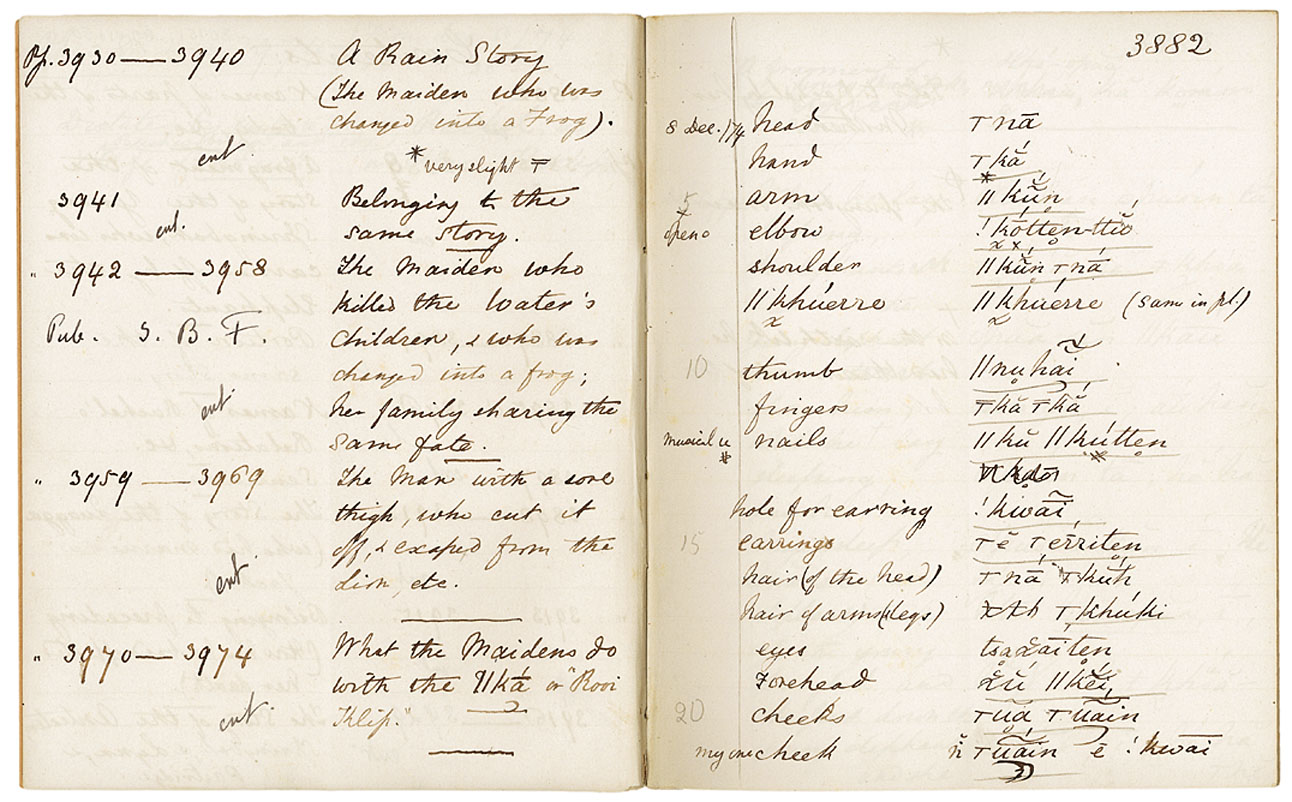 Pp. 3930 — 3940 A Rain Story
(The Maiden who was
changed into a Frog).
ent
* very slight ⊤
3941 Belonging to the
ent. same story.
" 3942 — 3958 The Maiden who
killed the Water's
Pub. S. B. F. children, & who was
changed into a frog;
ent. her family sharing the
same fate.
" 3959 — 3969 The Man with a sore
thigh, who cut it
off, & escaped from the
ent Lion, etc.
" 3970 — 3974 What the Maidens do
with the ǁká or "Rooi
ent. Klip."
3882
8 Dec./74 head ⊤nā
hand ⊤kắ
5 arm ǁkŭn
open o elbow !kŏtten-ttŭ
shoulder ǁkŭn ⊤ná
ǁkhúerre ǁkhúerre (same in pl.)
10 thumb ǁnuhái
fingers ⊤kă ⊤kă
musical u nails ǁkŭ ǁkútten
hole for earring !kwāĩ
15 earrings ⊤ĕ ⊤ērriten
hair (of the head) ⊤nā ⊤kŭḱ
hair of arms (legs) ⊤khúki
eyes tsaxáiten
Forehead xú ǁkĕí
20 cheeks ⊤ua ⊤uain
my one cheek ň ⊤uain e !kwāĩ